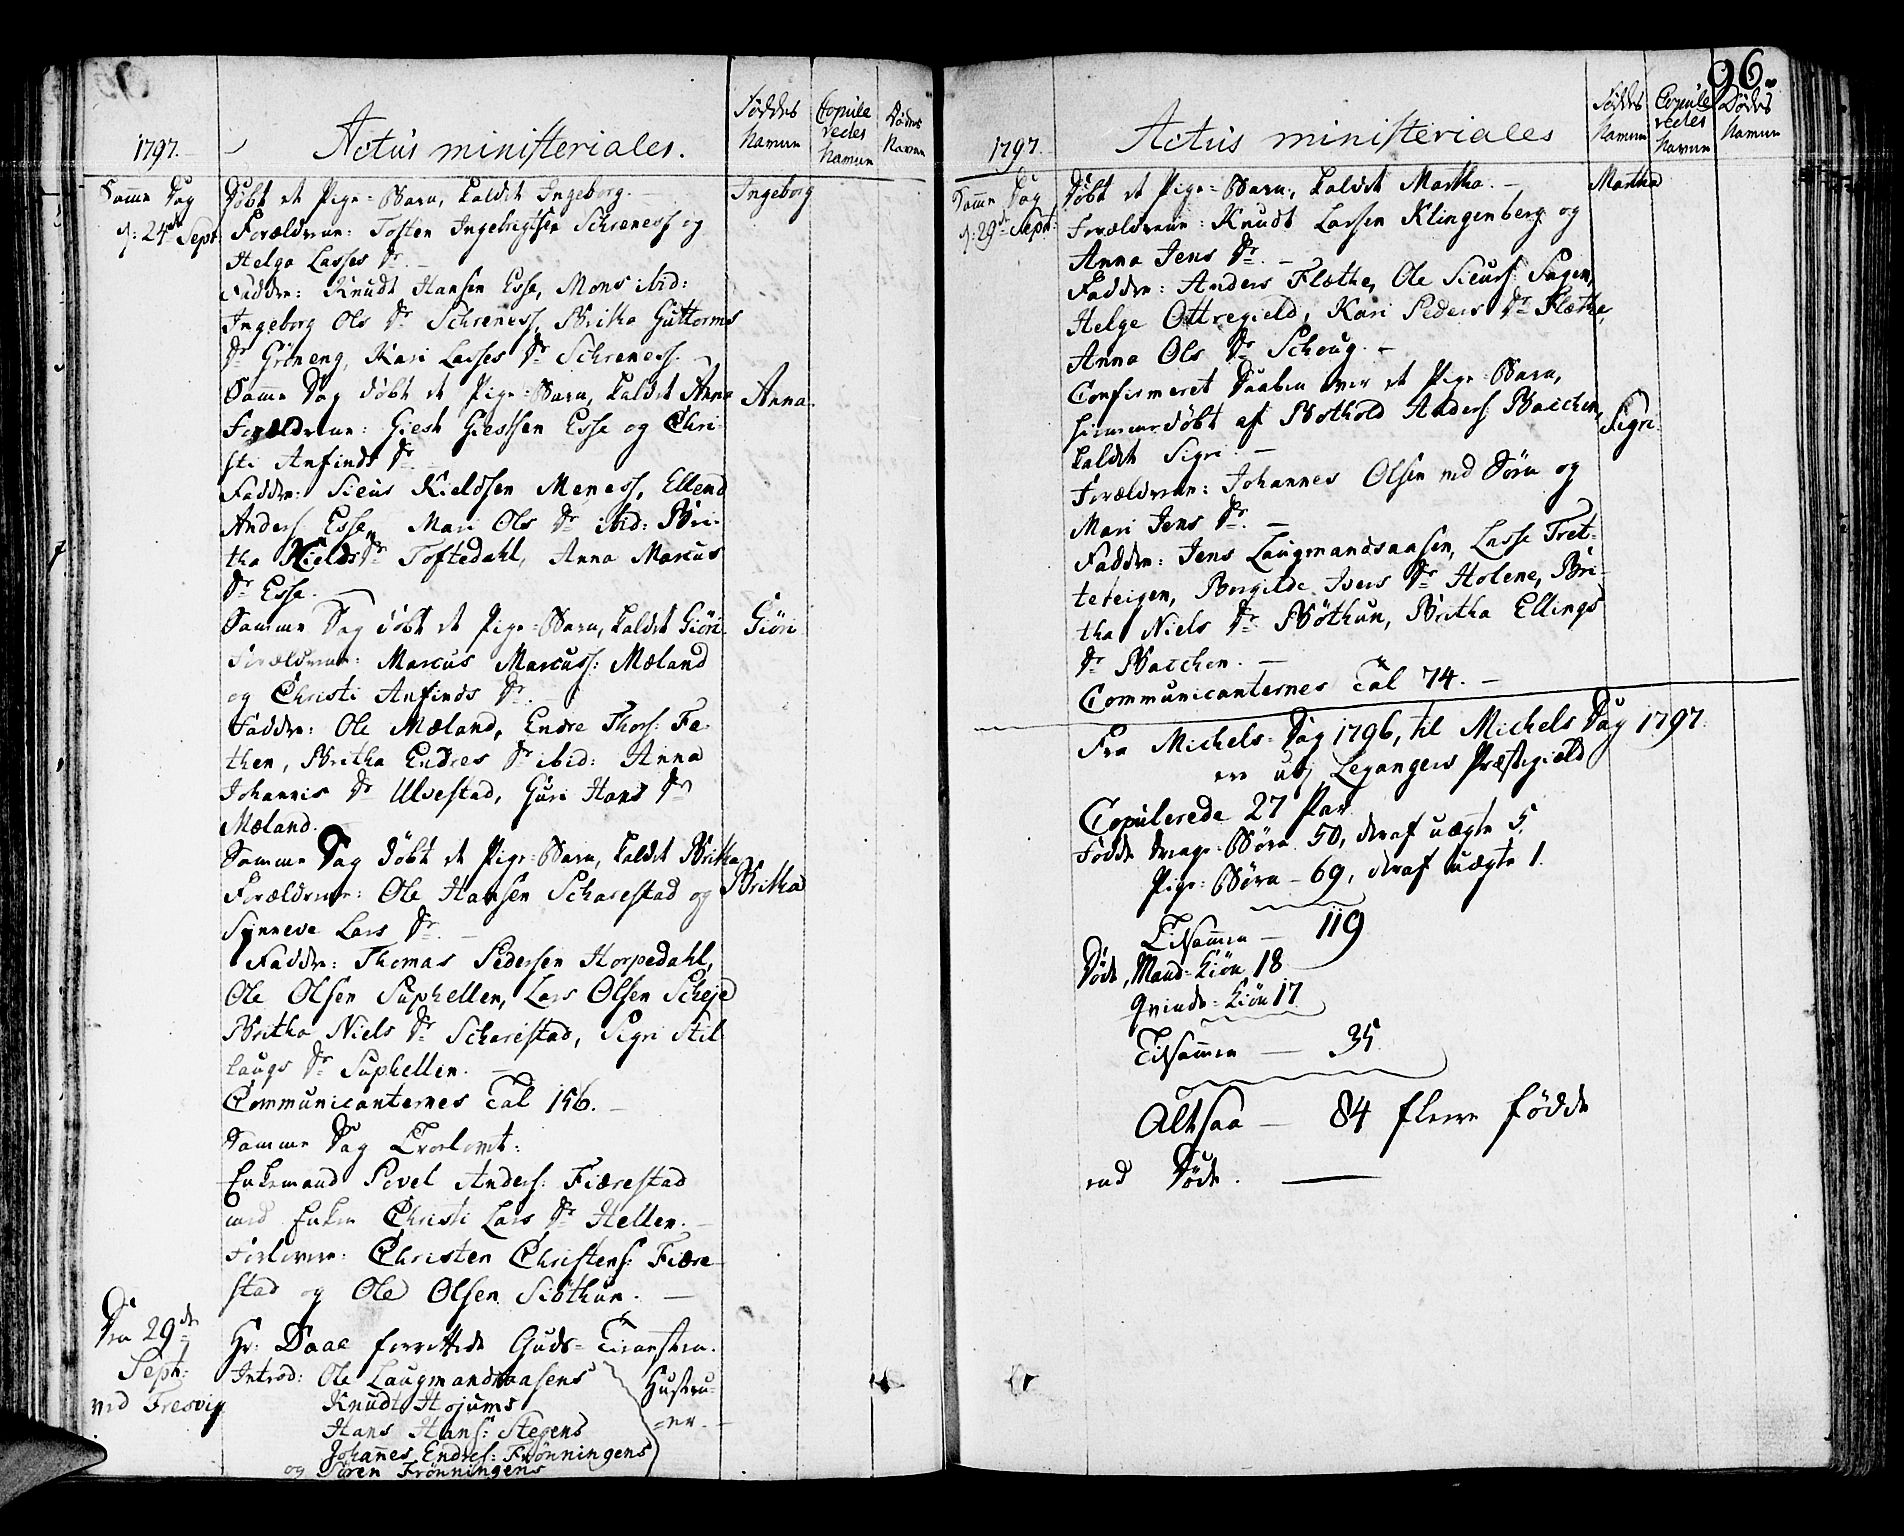 1797. Actus ministeriales. Føddes Namne Copule redes Namne Dødes Navne
Samme Dag
d: 24de Sept:
Døbt et Pige-Barn, kaldet Ingeborg. Ingeborg
Forældrene: Tosten Ingebrigtsen Schreness og
Helga Lasses Dr. –
Faddre: Knudt Hansen Esse, Mons ibid:
Ingeborg Ols Dr Schreness, Britha Guttorms
Dr Grøneng, Kari Lasses Dr Schreness. –
Samme Dag døbt et Pige-Barn, kaldet Anna Anna.
Forældrene: Giest Giestsen Esse og Chri-
sti Anfinds Dr.
Faddre: Sieus Kieldsen Meness, Ellend
Anders: Esse, Mari Ols Dr ibid: Bri-
tha Kields Dr Toftedahl, Anna Marcus
Dr Esse. –
Samme Dag døbt et Pige-Barn, kaldet Giøri. Giøri
Forældrene: Marcus Marcuss: Mæland
og Christi Anfinds Dr.
Faddre: Ole Mæland, Endre Thors: Fe-
then, Britha Endres Dr ibid: Anna
Johannis Dr Ulvestad, Guri Hans Dr
Mæland. –
Samme Dag døbt et Pige-Barn, kaldet Britha Britha
Forældrene: Ole Hansen Scharestad og
Synneve Lars Dr. –
Faddre: Thomas Pedersen Horpedahl,
Ole Olsen Suphellen, Lars Olsen Scheje
Britha Niels Dr Scharestad, Sigri Stil
laugs Dr Suphellen. –
Communicanternes Tal 156. –
Samme Dag Trolovet:
Enkemand Povel Anders: Fiærestad
med Enken Christi Lars Dr Hellen. –
Forlovere: Christen Christens: Fiære-
stad og Ole Olsen Siøthun. –
Den 29de
Sept:
ved Fresvig
Hr: Daae forrettede Guds-Tienesten.
Introd: Ole Laugmandsaasens
Knudt Hojums
Hans Hans: Stegens
Johannes Endres: Frønningens
og Søren Frønningens
Hustru-
er. –
96.
1797. Actus ministeriales Føddes Namne Copule redes Navne Dødes Namne
Samme Dag
d: 29de Sept:
Døbt et Pige-Barn, kaldet Martha. – Martha
Forældrene: Knudt Larsen Klingenberg og
Anna Jens Dr. –
Faddre: Anders Flæthe, Ole Sieurs: Sagen,
Helge Ottregield, Kari Peders Dr Flæthe,
Anna Ols Dr Schoug. –
Confirmeret Daaben over et Pige-Barn,
hiemmedøbt af Bothold Anders: Bacchen, Sigri.
kaldet Sigri. –
Forældrene: Johannes Olsen ved Søen og
Mari Jens Dr. –
Faddre: Jens Laugmandsaasen, Lasse Tret-
teteigen, Borgilde Ivers Dr Holene, Bri-
tha Niels Dr Bøthun, Britha Ellings
Dr Bacchen. –
Communicanternes Tal 74. –
Fra Michels-Dag 1796, til Michels Dag 1797.
ere udj Leganger Præstegield
Copulerede 27 Par
Fødde Drenge-Børn 50, deraf uægte 5.
Pige-Børn – 69, deraf uægte 1.
Tilsammen – 119
Døde, Mand-Kiøn 18
Qvinde-Kiøn 17
Tilsammen – 35
Altsaa – 84 flere fødde
end Døde. –